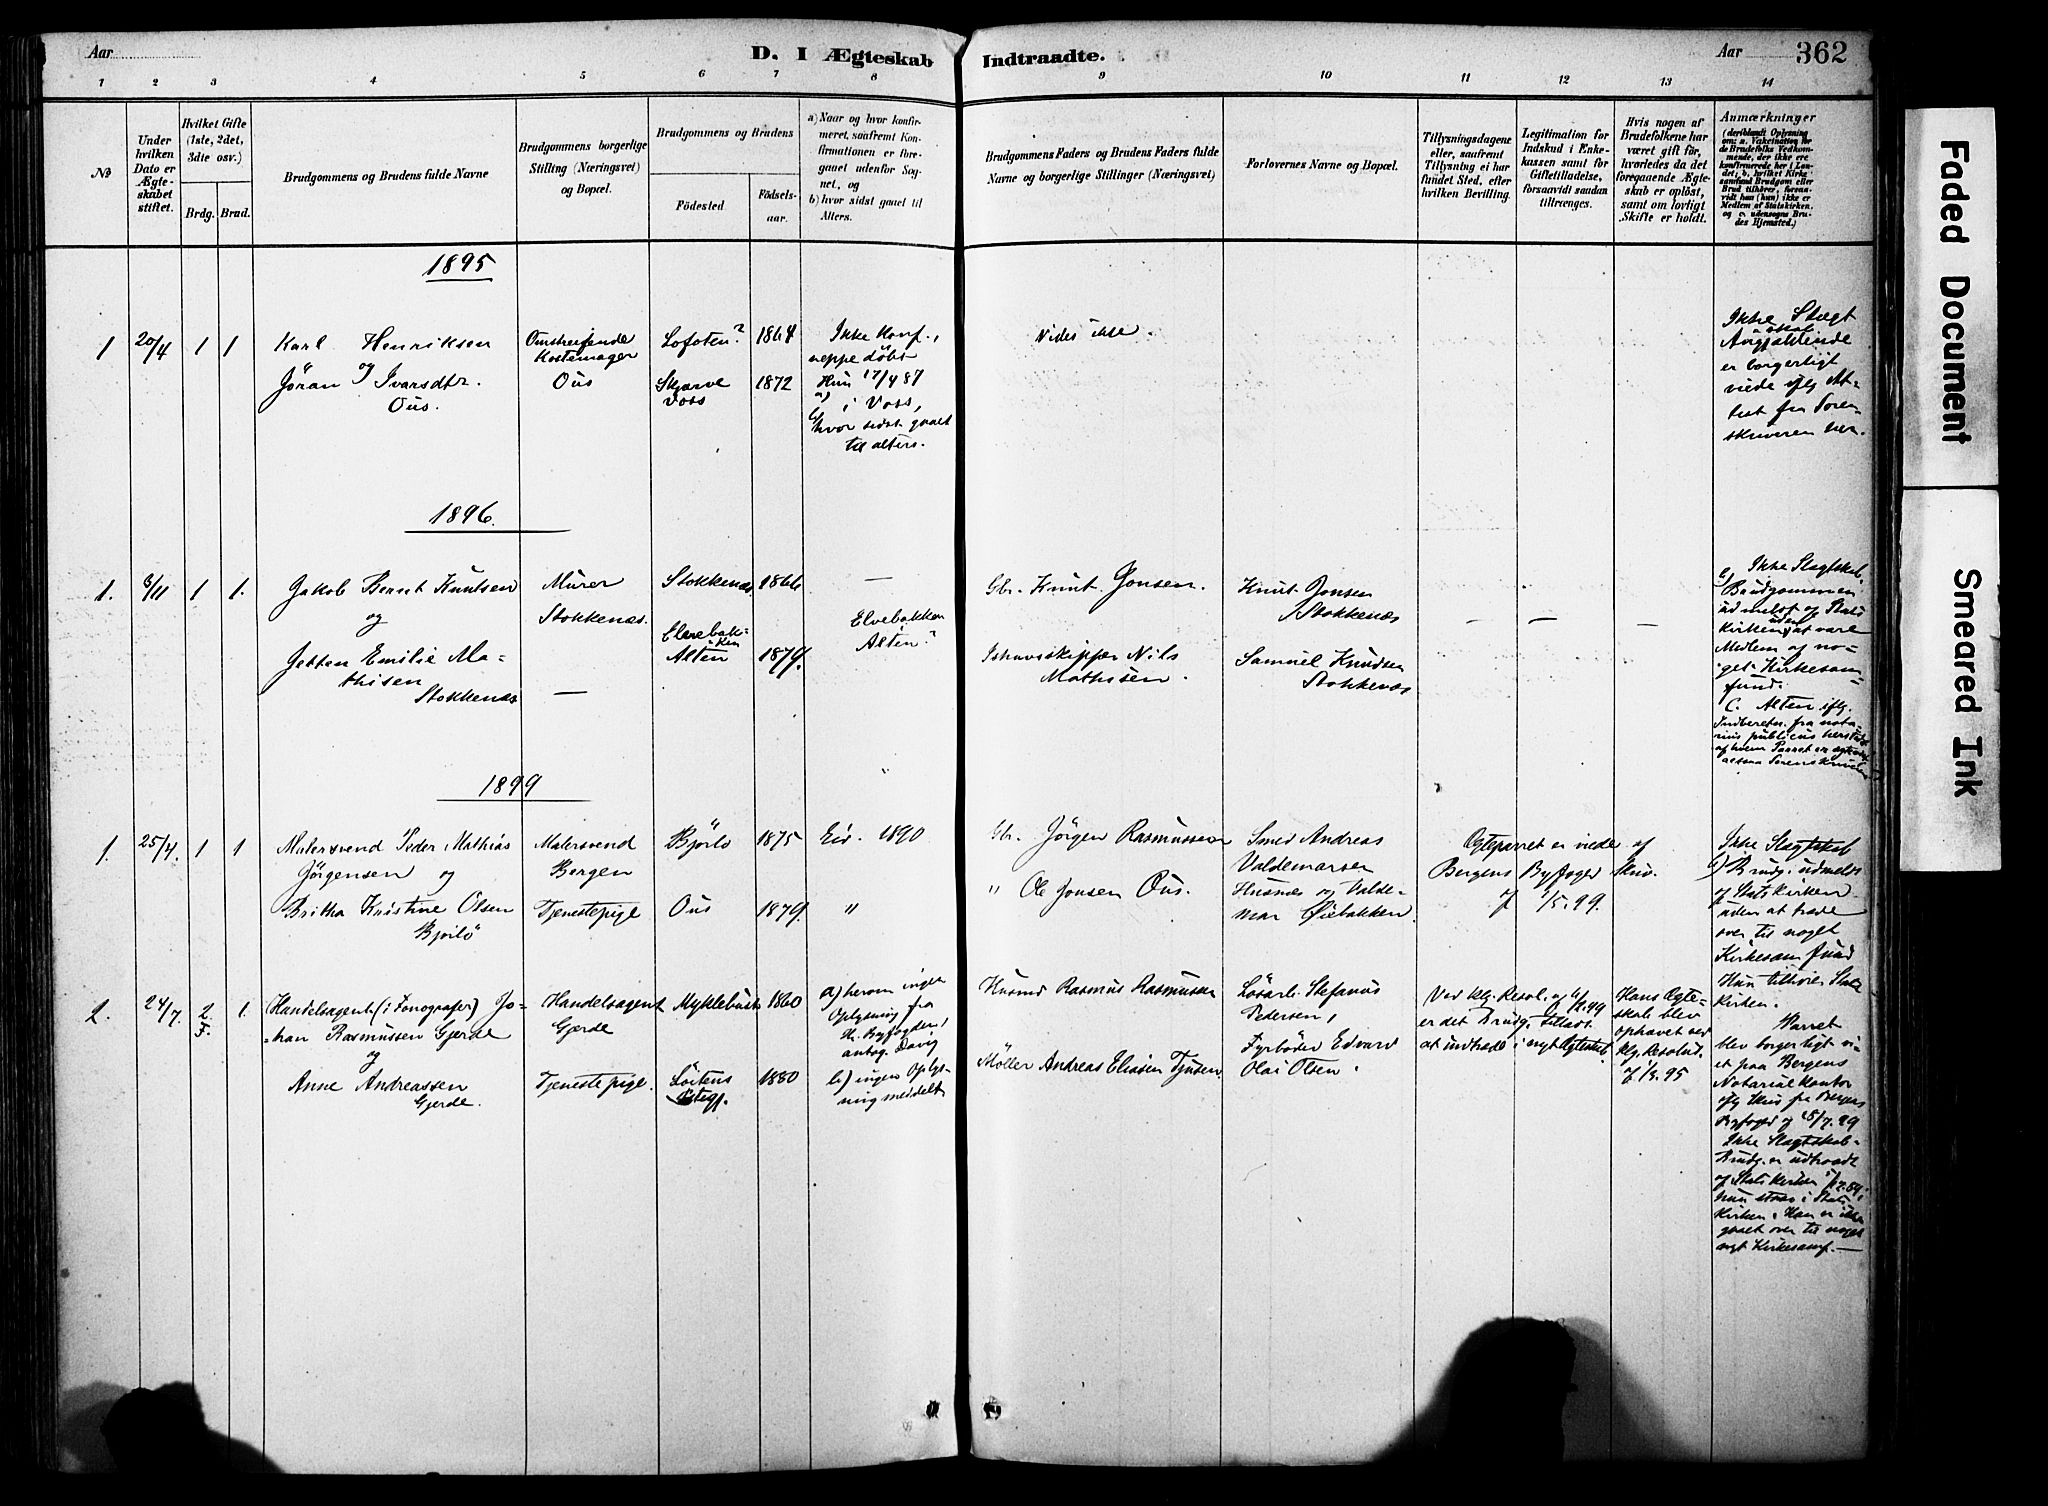 Aar
D. I Ægteskab Indtraadte.
Aar 362
1 2 3 4 5 6 7 8 9 10 11 12 13 14
No
Under
hvilken
Dato er
Ægte-
skabet
stiftet.
Hvilket Gifte
(1ste, 2det,
3die osv.)
Brdg. Brud.
Brudgommens og Brudens fulde Navne
Brudgommens borgerlige
Stilling (Næringsvei)
og Bopæl.
Brudgommens og Brudens
Födested.
Födsels-
aar.
a) Naar og hvor konfir-
meret, saafremt Kon-
firmationen er fore-
gaaet udenfor Sog-
net, og
b) hvor sidst gaaet til
Alters.
Brudgommens Faders og Brudens Faders fulde
Navne og borgerlige Stillinger (Næringsvei)
Forlovernes Navne og Bopæl.
Tillysningsdagene
eller, saafremt
Tillysning ei har
fundet Sted, efter
hvilken Bevilling.
Legitimation for
Indskud i Enke-
kassen samt for
Giftetilladelse,
forsaavidt saadan
tiltrænges.
Hvis nogen af
Brudefolkene har
været gift för,
hvorledes da det
foregaaende Ægte-
skab er oplöst,
samt om lovligt
Skifte er holdt.
Anmærkninger
(deriblandt Oplysning
om: a. Vaccination for
de Brudefolks Vedkom-
mende, der ikke ere
konfirmerede her i Lan-
det; b. hvilket Kirke-
samfund Brudgom eller
Brud tilhörer, forsaa-
vidt han (hun) ikke er
Medlem af Statskirken,
og c. udensogns Bru-
des Hjemsted.)
1895
1 20/4 1 1
Karl Henriksen
og
Jöran Ivarsdtr.
Ous.
Omstreifende
Kostemager
Ous
Lofoten? 1864
Skjerve
Voss 1872
Ikke Konf.,
neppe döbt
Hun 17/4 87
a) i Voss,
b) hvor sidst gaaet
til alters.
Vides ikke.
Ikke Slegt
skab
Angjældende
er borgerligt
viede iflg At-
test fra Soren-
skriveren her.
1896.
1. 3/11 1 1.
Jakob Bernt Knutsen
og
Jetten Emilie Ma-
thisen
Stokkenæs
Murer
Stokkenæs.
—
Stokkenæs 1866
Elvebak-
ken
Alten 1879.
—
Elvebakken
Alten?
Gbr. Knut Jonsen.
Ishavsskipper Nils
Mathisen.
Knut Jonsen
Stokkenæs
Samuel Knudsen
Stokkenæs
— — —
Ikke Slagtskab.
b) Brudgommen
udmeldt af Stats
Kirken uden at være
Medlem af no-
get Kirkesam-
fund.
C. Alten iflg.
Indberetn. fra nota-
rius publicus
1899
1. 25/4. 1 1
Malersvend Peder Mathias
Jörgensen og
Britha Kristine Olsen
Bjørlö
Malersvend
Bergen
Tjenestepige
Bjørlo 1875
Ous 1879.
Eid. 1890
"
Gbr. Jörgen Rasmussen
" Ole Jonsen Ous.
Smed Andreas
Valdemarsen
Husnæs og Valde-
mar Øiebakken.
Ogteparret er viede af
Bergens Byfoged Skriv.
af 1/5.99.
Ikke Slagtskab
b) Brudg. udmeldt
af Statskirken
uden at træde
over til noget
Kirkesamfund
Hun tilhörer Stats
Kirken.
2. 24/7. 2. F. 1.
Handelsagent (i Fonografer) Jo-
han Rasmussen Gjerde
og
Anne Andreassen
Gjerde.
Handelsagent
Gjerde
Tjenestepige.
Myklebust 1860
Lötens
Prstgj. 1880
a) herom ingen
Oplysning fra
Hr. Byfogden,
antag. Davig
b) ingen Oplys-
ning meddelt
Husmd Rasmus Rasmussen
Möller Andreas Eliasen
Lösarb. Stefanus
Pedersen,
Fyrböder Edvard
Olai Olsen.
Ved klg. Resol. af 4/2.99
er det Brudg. tilladt
at indtræde i nyt Ogteskab
Hans Ogte-
skab blev
ophævet ved
klg. Resolut.
af 1/3.95
Parret
blev borgerligt vi-
et paa Bergens
Notarialkontor
iflg Skriv fra Bergens
Byfoged af 25/7.99
Ikke Slagtskab-
Brudg. er udtraadt
af Statskirken
hun staar i Stats
Kirken. Han er ikke
gaaet over til noget
nyt Kirkesamf.—
Faded Document
Smeared Ink